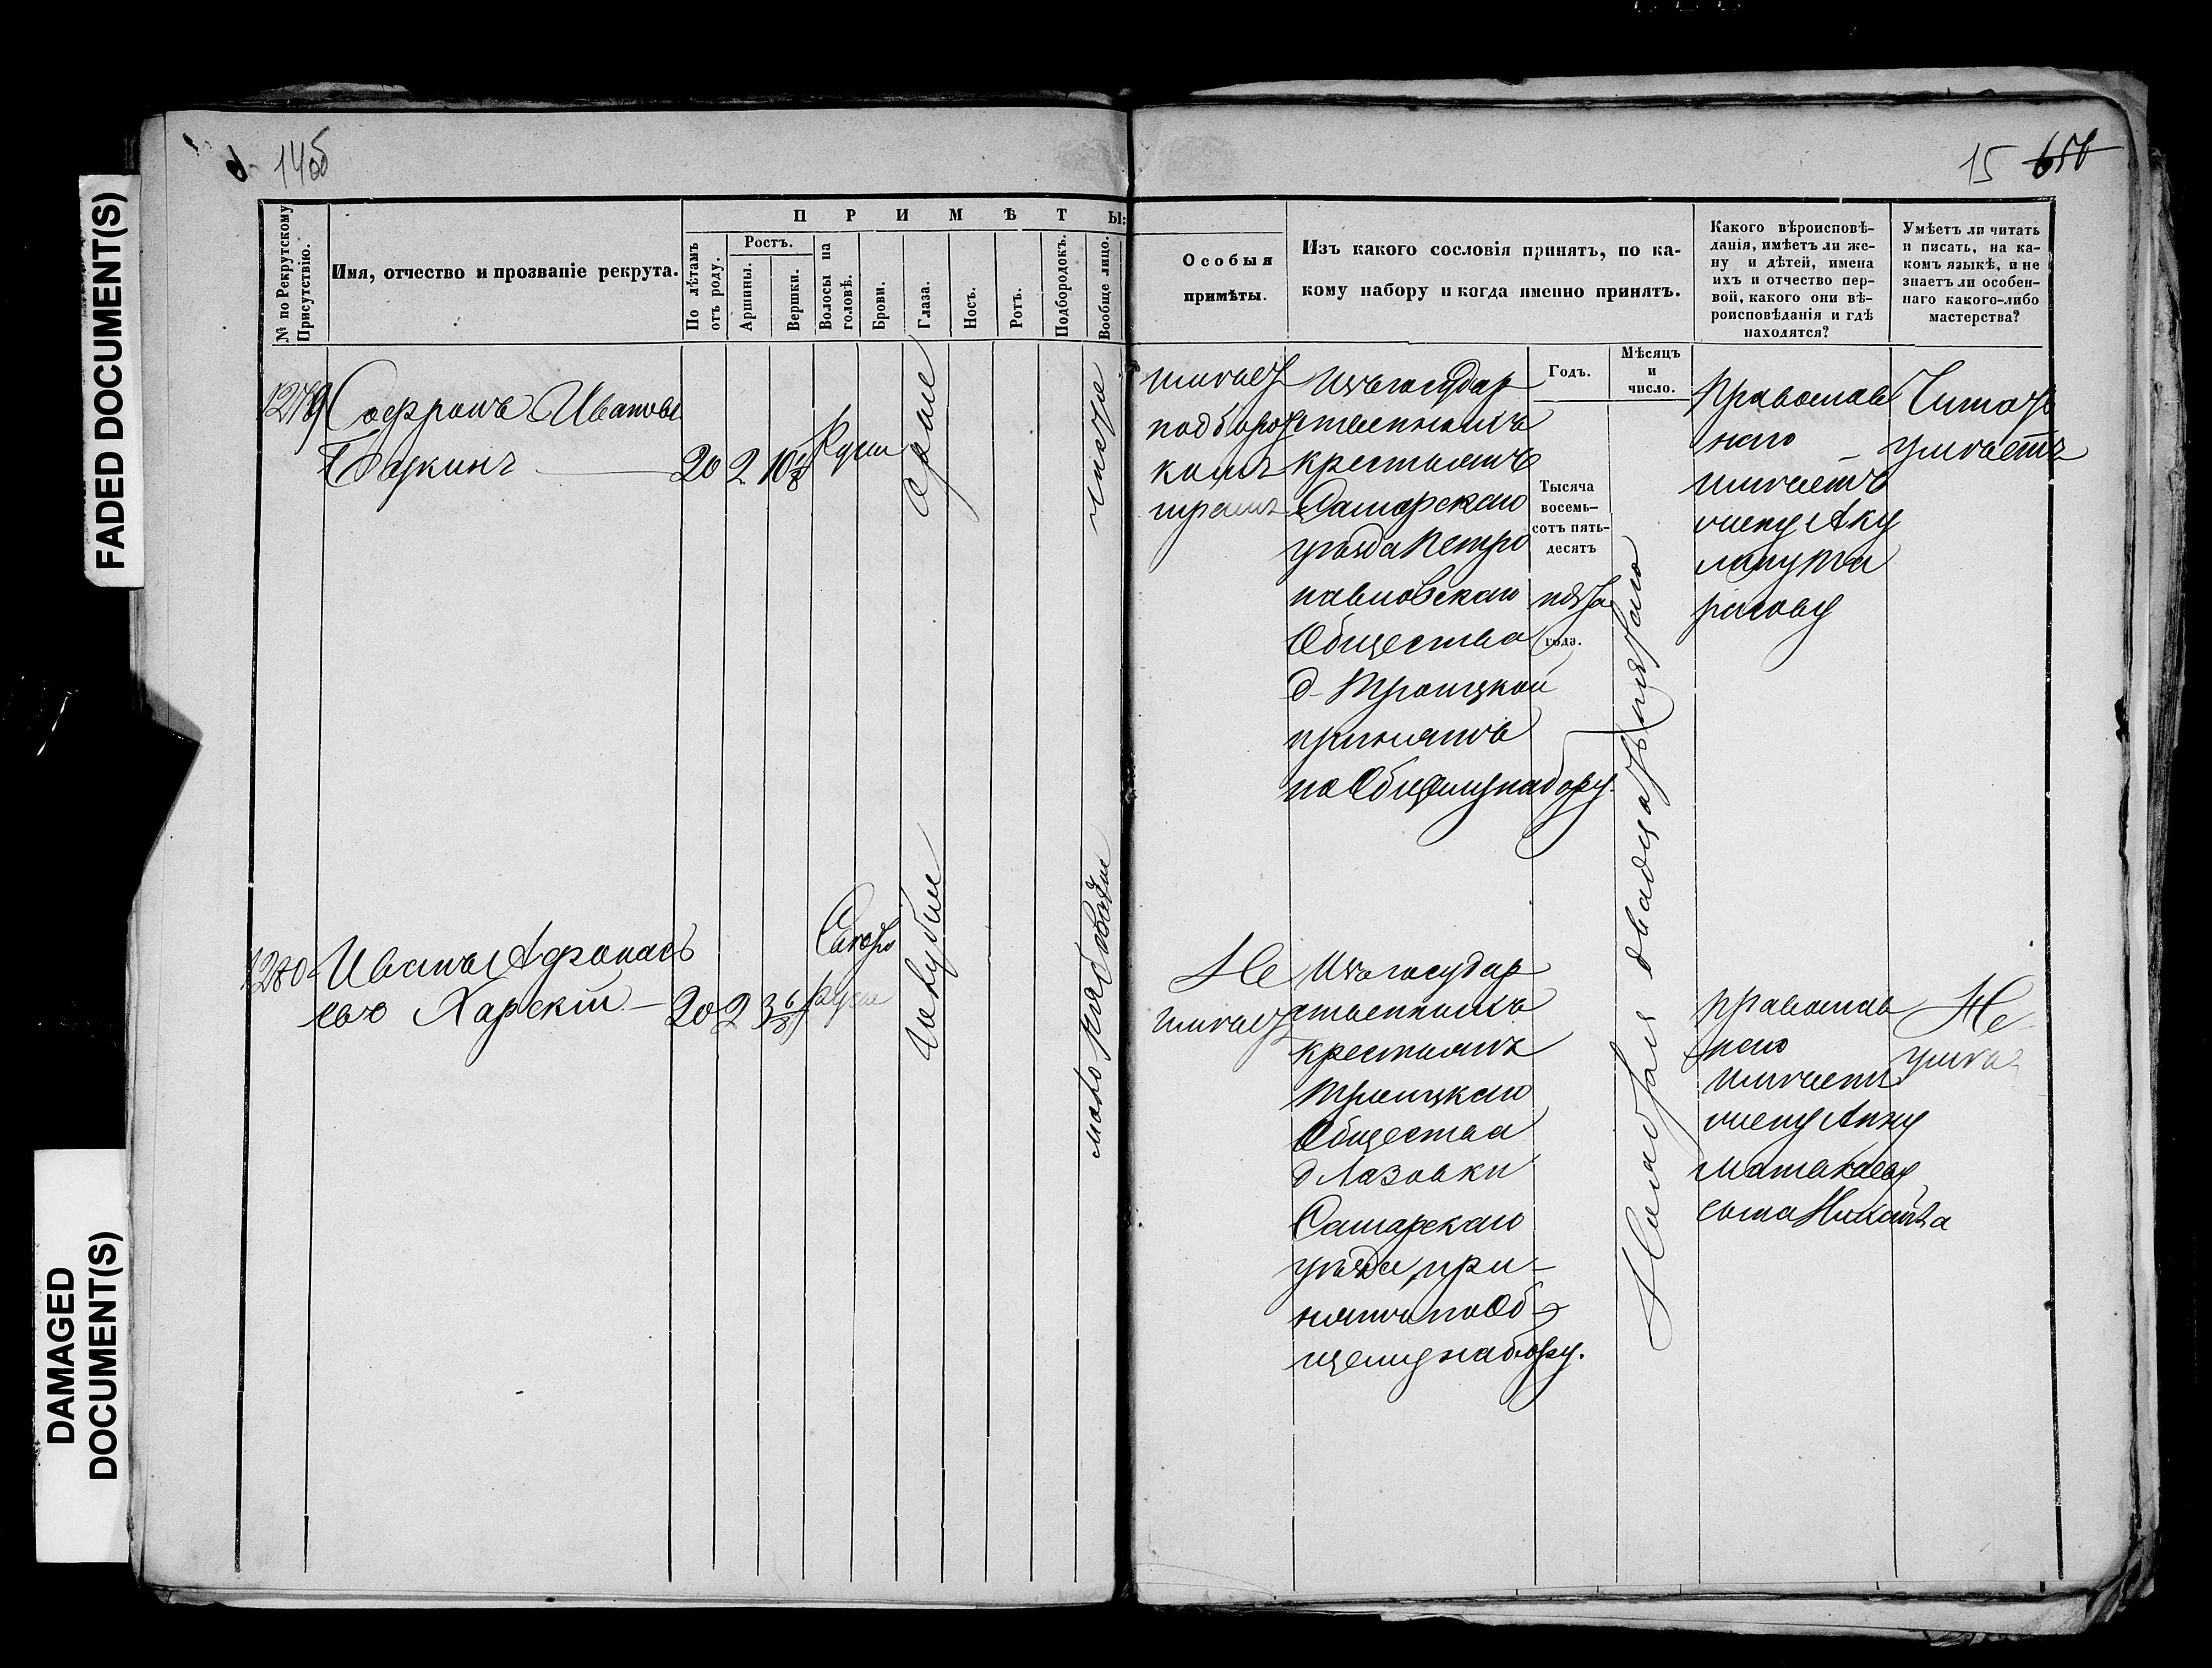 FADED DOCUMENT(S)
DAMAGED
DOCUMENT(S)
14об
15
П Р И М Ѣ Т Ы:
№ по Рекрутскому
Присутствію.
Имя, отчество и прозваніе рекрута.
По лѣтамъ
отъ роду.
Ростъ.
Аршины.
Вершки.
Волосы на
головѣ.
Брови.
Глаза.
Носъ.
Ротъ.
Подбородокъ.
Вообще лицо.
Особыя
примѣты.
Изъ какого сословія принятъ, по ка-
кому набору и когда именно принятъ.
Какого вѣроисповѣ-
данія, имѣетъ ли же-
ну и дѣтей, имена
ихъ и отчество пер-
вой, какого они вѣ-
роисповѣданія и гдѣ
находятся?
Умѣетъ ли читать
и писать, на ка-
комъ языкѣ, и не
знаетъ ли особен-
наго какого-либо
мастерства?
Годъ.
Мѣсяцъ
и
число.
Тысяча
восемь-
сотъ пять-
десятъ
года.
1279
Софронъ Ивановъ
20 2 10
Русы
Сѣрые
чисто
имѣетъ
подбород
комъ
шрамъ
Изъ государ
ственныхъ
крестьянъ
Самарскаго
уѣзда Петро
павловскаго
Общества
д. Троицкой
принятъ
по Общему набору.
пята
Ноября двадцать пятаго
Православ
наго
имѣетъ
жену Аку
лину
Читать
умѣетъ
1280
Иванъ Афонась
евъ Харскій 20 2 3 6/8
Свѣтло
русы
Голубые
мало рябоватое
Не
имѣетъ
Изъ государ
ственныхъ
крестьянъ
Троицкаго
Общества
д Лазовки
Самарскаго
уѣзда, при-
нятъ по Об-
щему набору.
Православ
наго
имѣетъ
жену Анну
Матвѣеву
сына
Не
умѣе